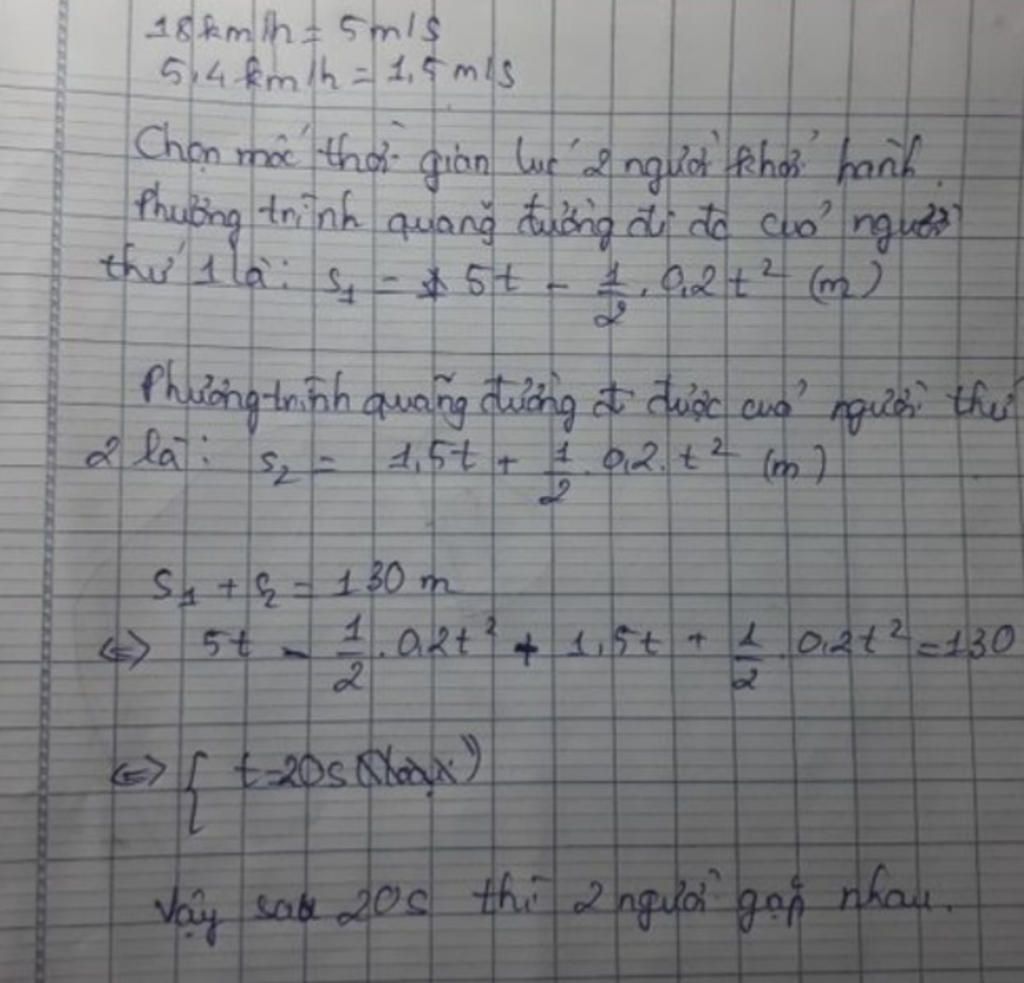 18km/h = 5m/s
5,4km/h = 1,5m/s
Chọn mốc thời gian lúc 2 người khởi hành.
Phương trình quãng đường đi đc của người
thứ 1 là: s₁ = 5t - 1/2 . 0,2t² (m)
Phương trình quãng đường đi được của người thứ
2 là: s₂ = 1,5t + 1/2 . 0,2.t² (m)
s₁ + s₂ = 130 m
<=> 5t - 1/2 . 0,2t² + 1,5t + 1/2 . 0,2t² = 130
<=> { t=20s
Vậy sau 20s thì 2 người gặp nhau.